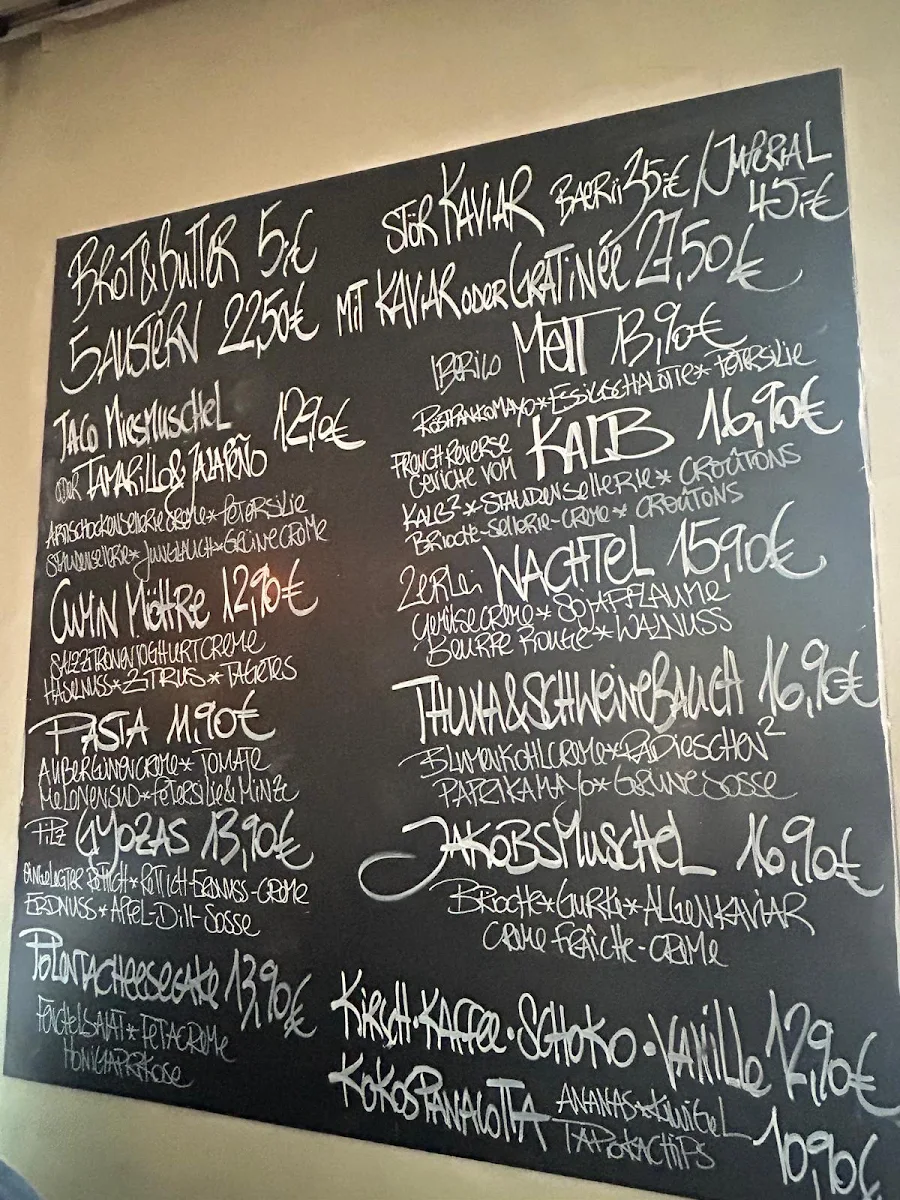 BROT & BUTTER 5,-€
STÖR KAVIAR BAERII 35,-€ / IMPERIAL 45,-€
5 AUSTERN 22,50€ MIT KAVIAR ODER GRATINÉE 27,50€
TACO MIESMUSCHEL 12,90€
ODER TAMARILLO & JALAPEÑO
ARTISCHOCKENSELLERIECREME * PETERSILIE
STAUDENSELLERIE * JUNGLAUCH * GRÜNE CREME
CUMIN MÖHRE 12,90€
SALZZITRONENJOGHURTCREME
HASELNUSS * ZITRUS * TAGETES
PASTA 11,90€
AUBERGINENCREME * TOMATE
MELONENSUD * PETERSILIE & MINZE
PILZ GYOZAS 13,90€
EINGELEGTER RETTICH * RETTICH-ERDNUSS-CREME
ERDNUSS * APFEL-DILL-SOSSE
POLENTACHEESECAKE 13,90€
FENCHELSALAT * FETACREME
HONIGAPRIKOSE
IBERICO METT 13,90€
RÖSTPANKOMAYO * ESSIGSCHALOTTE * PETERSILIE
FRENCH REVERSE
GERICHE VOM KALB 16,90€
KALB² * STAUDENSELLERIE * CROÛTONS
BRIOCHE-SELLERIE-CREME * CROÛTONS
2ERLEI WACHTEL 15,90€
GEMÜSECREME * SOJAPFLAUME
BEURRE ROUGE * WALNUSS
THUNA & SCHWEINEBAUCH 16,90€
BLUMENKOHLCREME * RADIESCHEN²
PAPRIKAMAYO * GRÜNE SOSSE
JAKOBSMUSCHEL 16,90€
BRIOCHE * GURKE * ALGENKAVIAR
CREME FRAÎCHE-CREME
KIRSCH · KAFFEE · SCHOKO · VANILLE 12,90€
KOKOSPANACOTTA ANANAS * KUVIGEL
TAPIOKACHIPS 10,90€